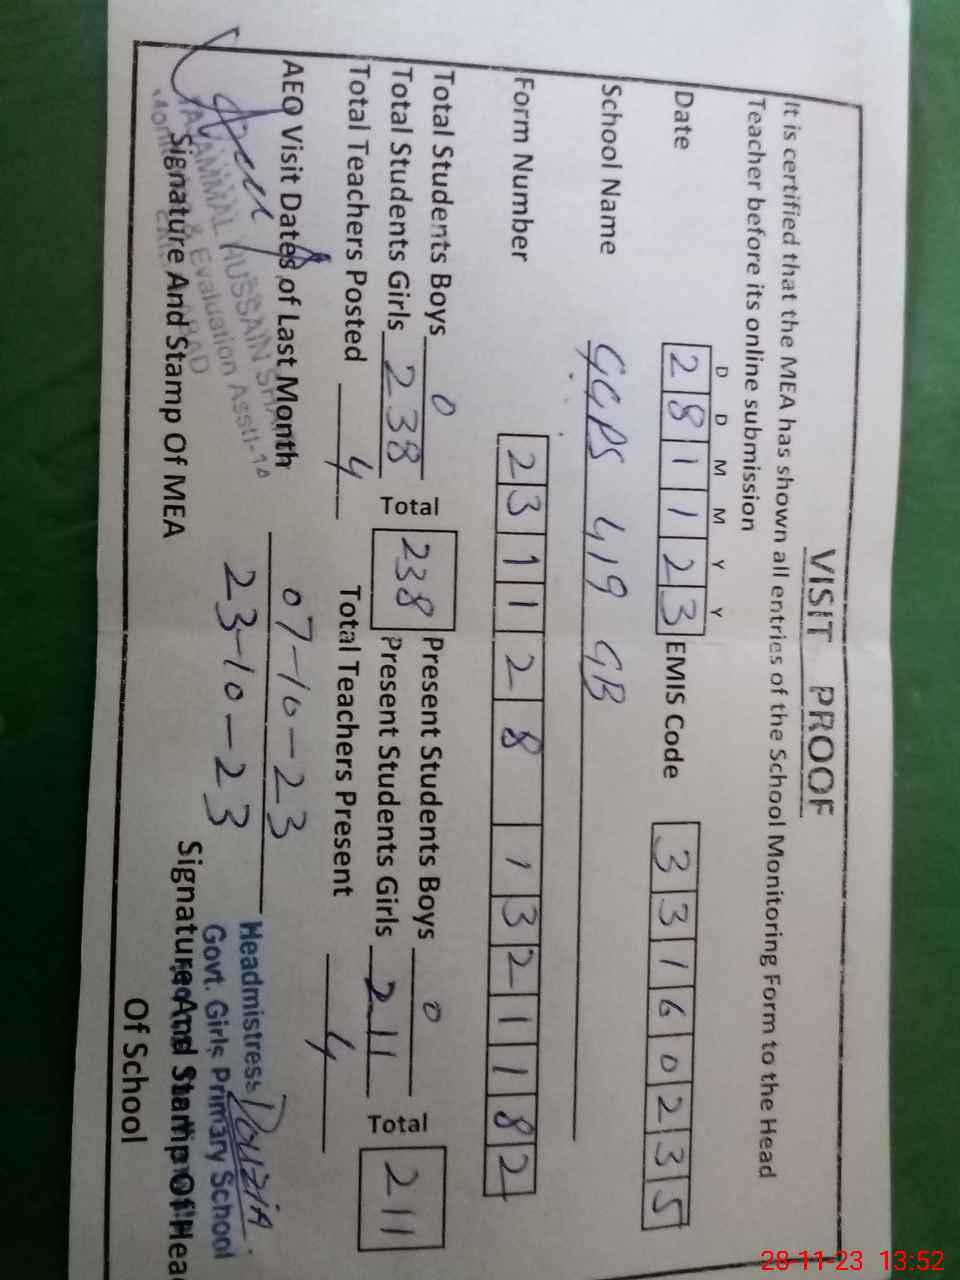 VISIT PROOF
It is certified that the MEA has shown all entries of the School Monitoring Form to the Head
Teacher before its online submission
D D M M Y Y
Date 281123 EMIS Code 33160235
School Name GGPS 419 GB
Form Number 231128 1321182
Total Students Boys 0 Total 238 Present Students Boys 0 Total 211
Total Students Girls 238 Present Students Girls 211
Total Teachers Posted 4 Total Teachers Present 4
AEO Visit Dates of Last Month 07-10-23
23-10-23
TAJAMMAL HUSSAIN SHAH
& Evaluation Asstt-18
Signature And Stamp Of MEA
Headmistress
Govt. Girls Primary School
Signature And Stamp Of Head
Of School
28-11-23 13:52